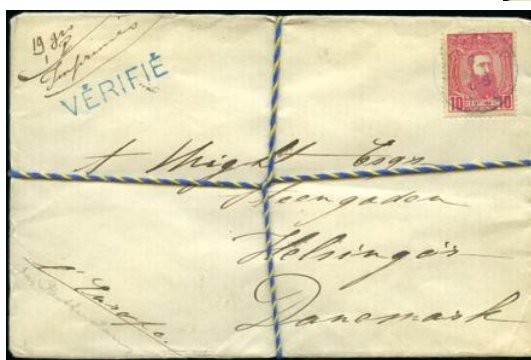 19 grs
Imprimés
VÉRIFIÉ
10 10
A Wight Esqr
Steengaden
Helsingör
Danemark